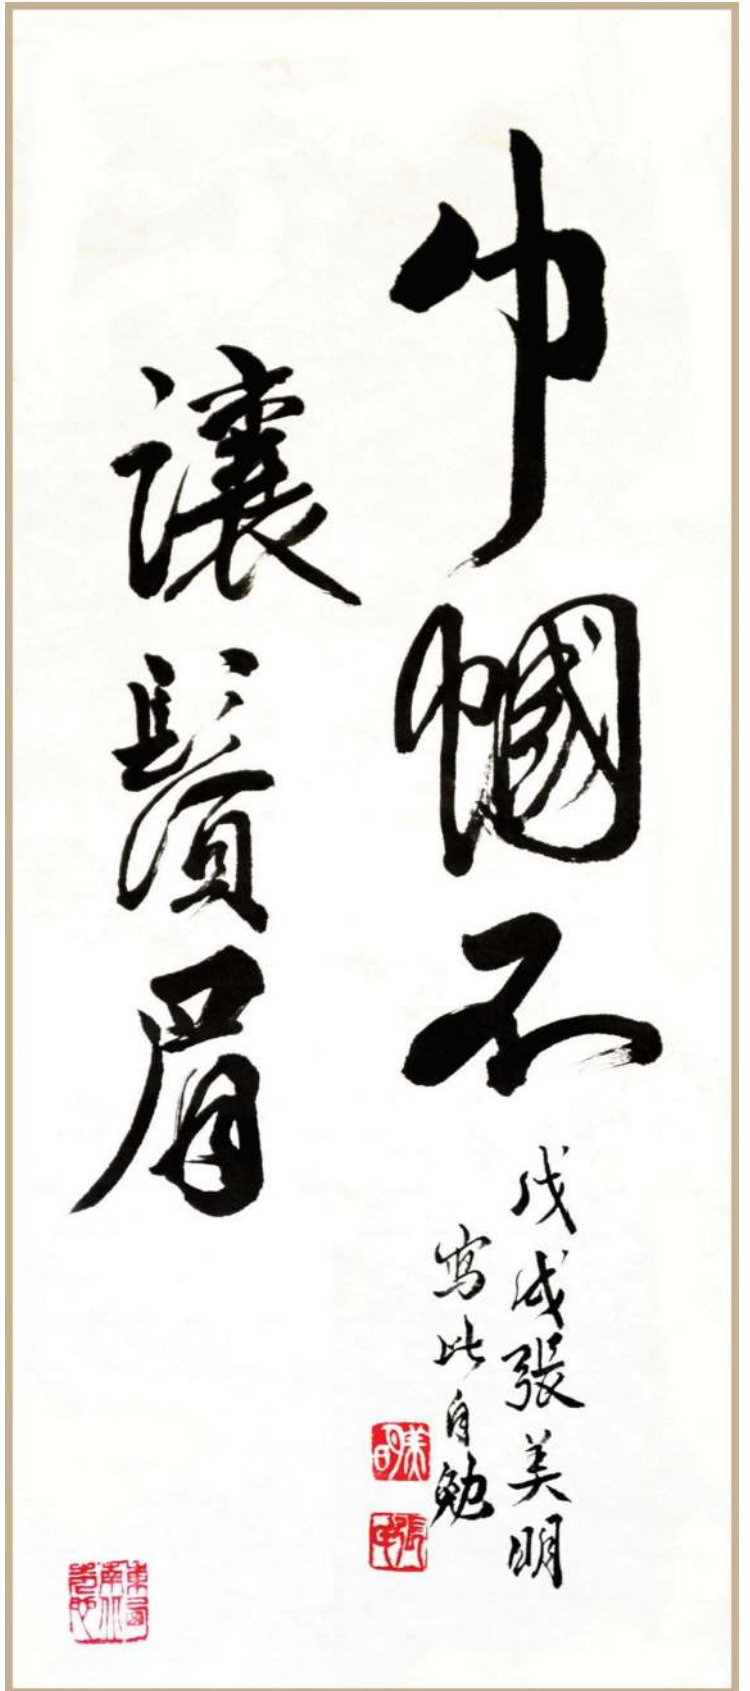 巾帼不
讓鬚眉
戊戌張美明
寫此自勉
美明